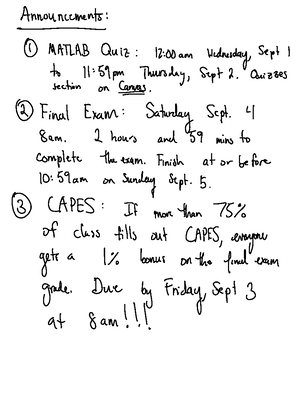 Announcements:
① MATLAB Quiz: 12:00am Wednesday, Sept 1
to 11:59pm Thursday, Sept 2. Quizzes
section on Canvas.
② Final Exam: Saturday Sept. 4
8am. 2 hours and 59 mins to
complete the exam. Finish at or before
10:59am on Sunday Sept. 5.
③ CAPES: If more than 75%
of class fills out CAPES, everyone
gets a 1% bonus on the final exam
grade. Due by Friday, Sept 3
at 8am!!!